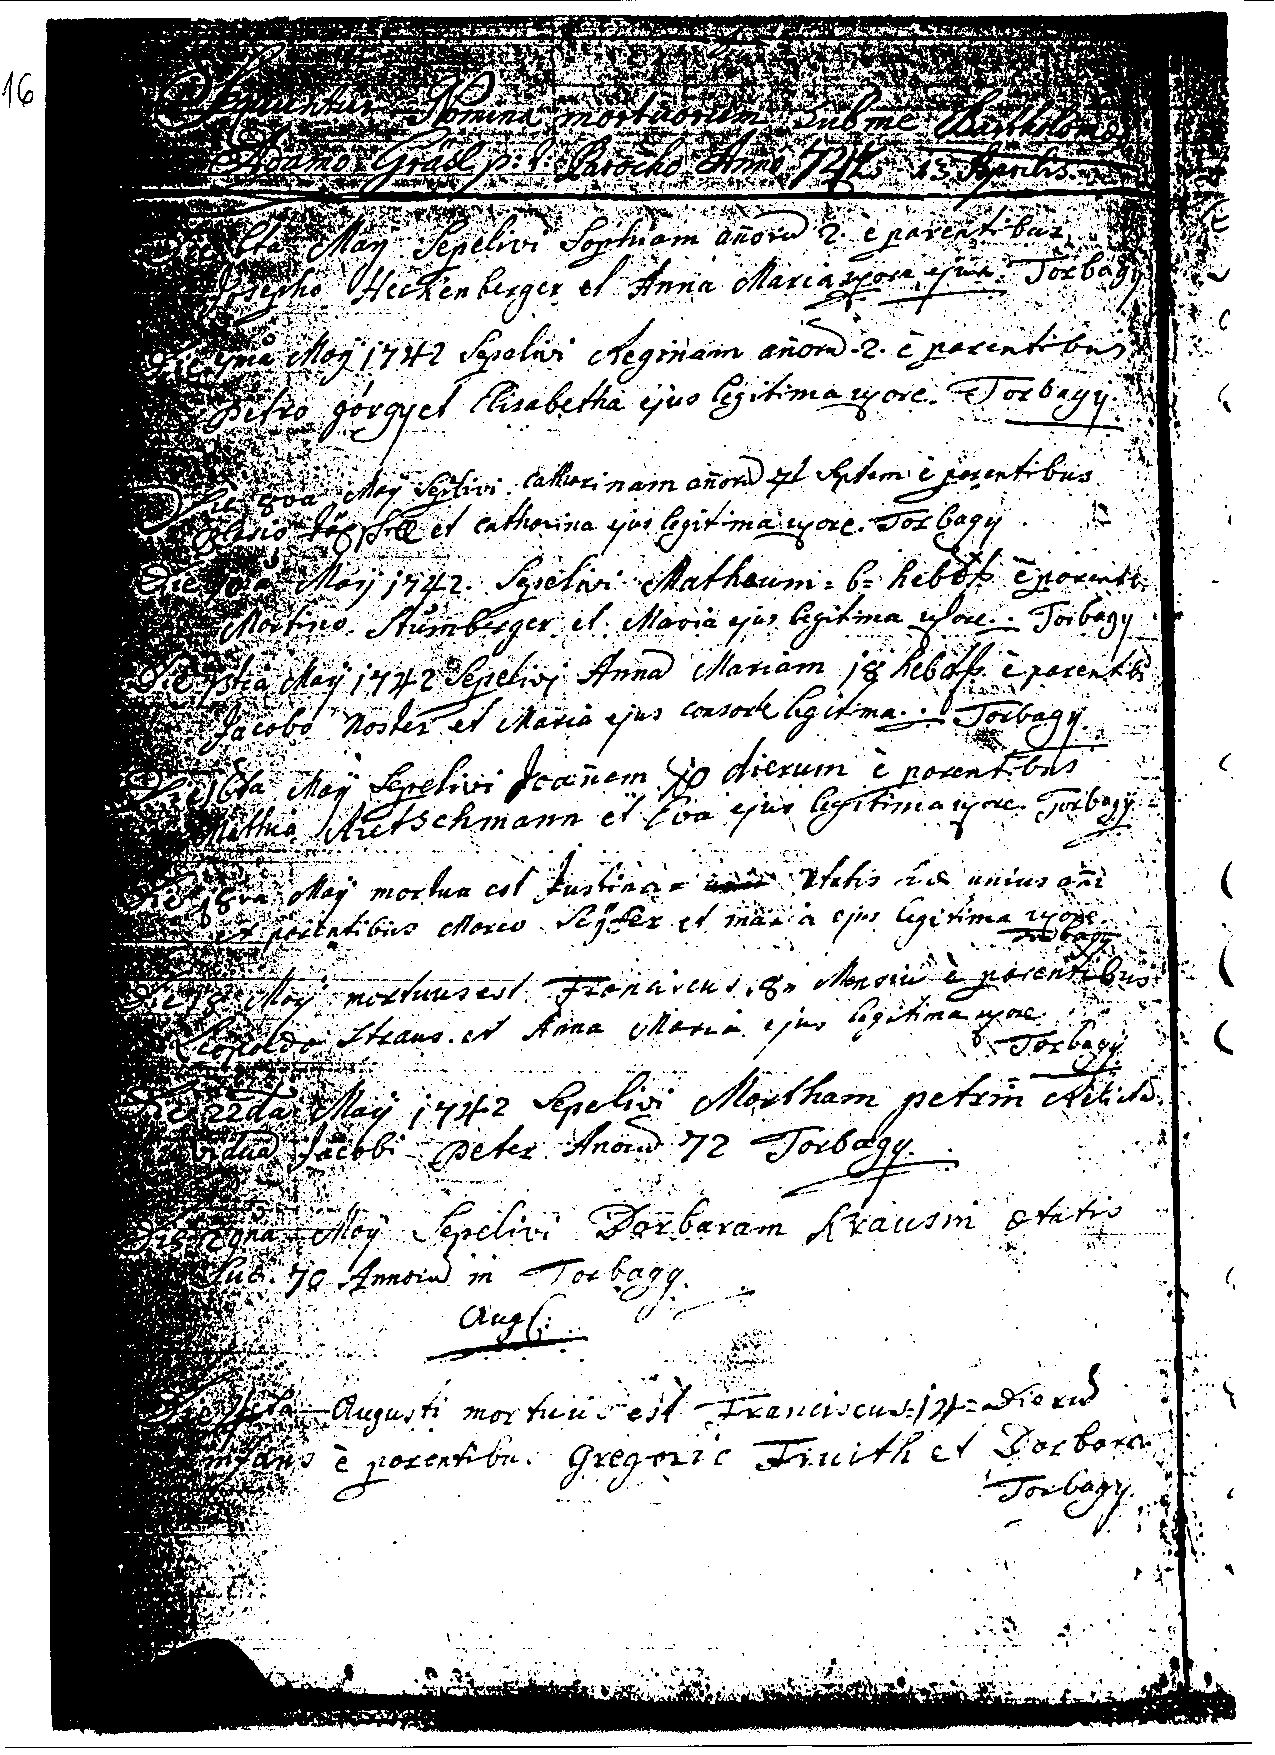 16
Sequuntur Nomina mortuorum Sub me Bartholomeo
Adamo Grädl p: t: Parocho Anno 742 13 Aprilis.
Die 6ta Maij Sepelivi Sophiam añoru 2. è parentibus
Josepho Heckenberger et Anna Maria uxore ejus. Torbagy
Die 9na Maij 1742 Sepelivi Reginam añoru 2. è parentibus
Petro görgy et Elisabetha ejus legitima uxore. Torbagy.
Die Maij Sepelivi Catharinam añoru Septem è parentibus
et Catharina ejus legitima uxore. Torbagy
Die Maij 1742. Sepelivi Mathaeum = 6= hebdo è parentib
Martino Stürnberger et Maria ejus legitima uxore. Torbagy
Die Maij 1742 Sepelivi Anna Mariam 18 hebdo è parentib
Jacobo Noster et Maria ejus consorte legitima.. Torbagy.
Die 16ta Maij Sepelivi Joañem dierum è parentibus
Mathia Kretschmann et Eva ejus legitima uxore. Torbagy
Die 18va Maij mortua est Justina Etatis suae unius añi
ex parentibus Marco et maria ejus legitima uxore.
Torbagy
Die 18 Maij mortuus est Franciscus .8. Mensiu è parentibus
Leopoldo Straus et Anna Maria ejus legitima uxore
Torbagy
Die 22da Maij 1742 Sepelivi Martham petrin Relicta
viduã Jacobi Peter Anoru 72 Torbagy.
Die 29na Maij Sepelivi Barbaram Krausin etatis
Sue. 70 Annoru in Torbagy.
Aug:
Die Augusti mortuus est Franciscus = 14 = Dieru
infans è parentibu. Gregorio et Barbara
Torbagy.